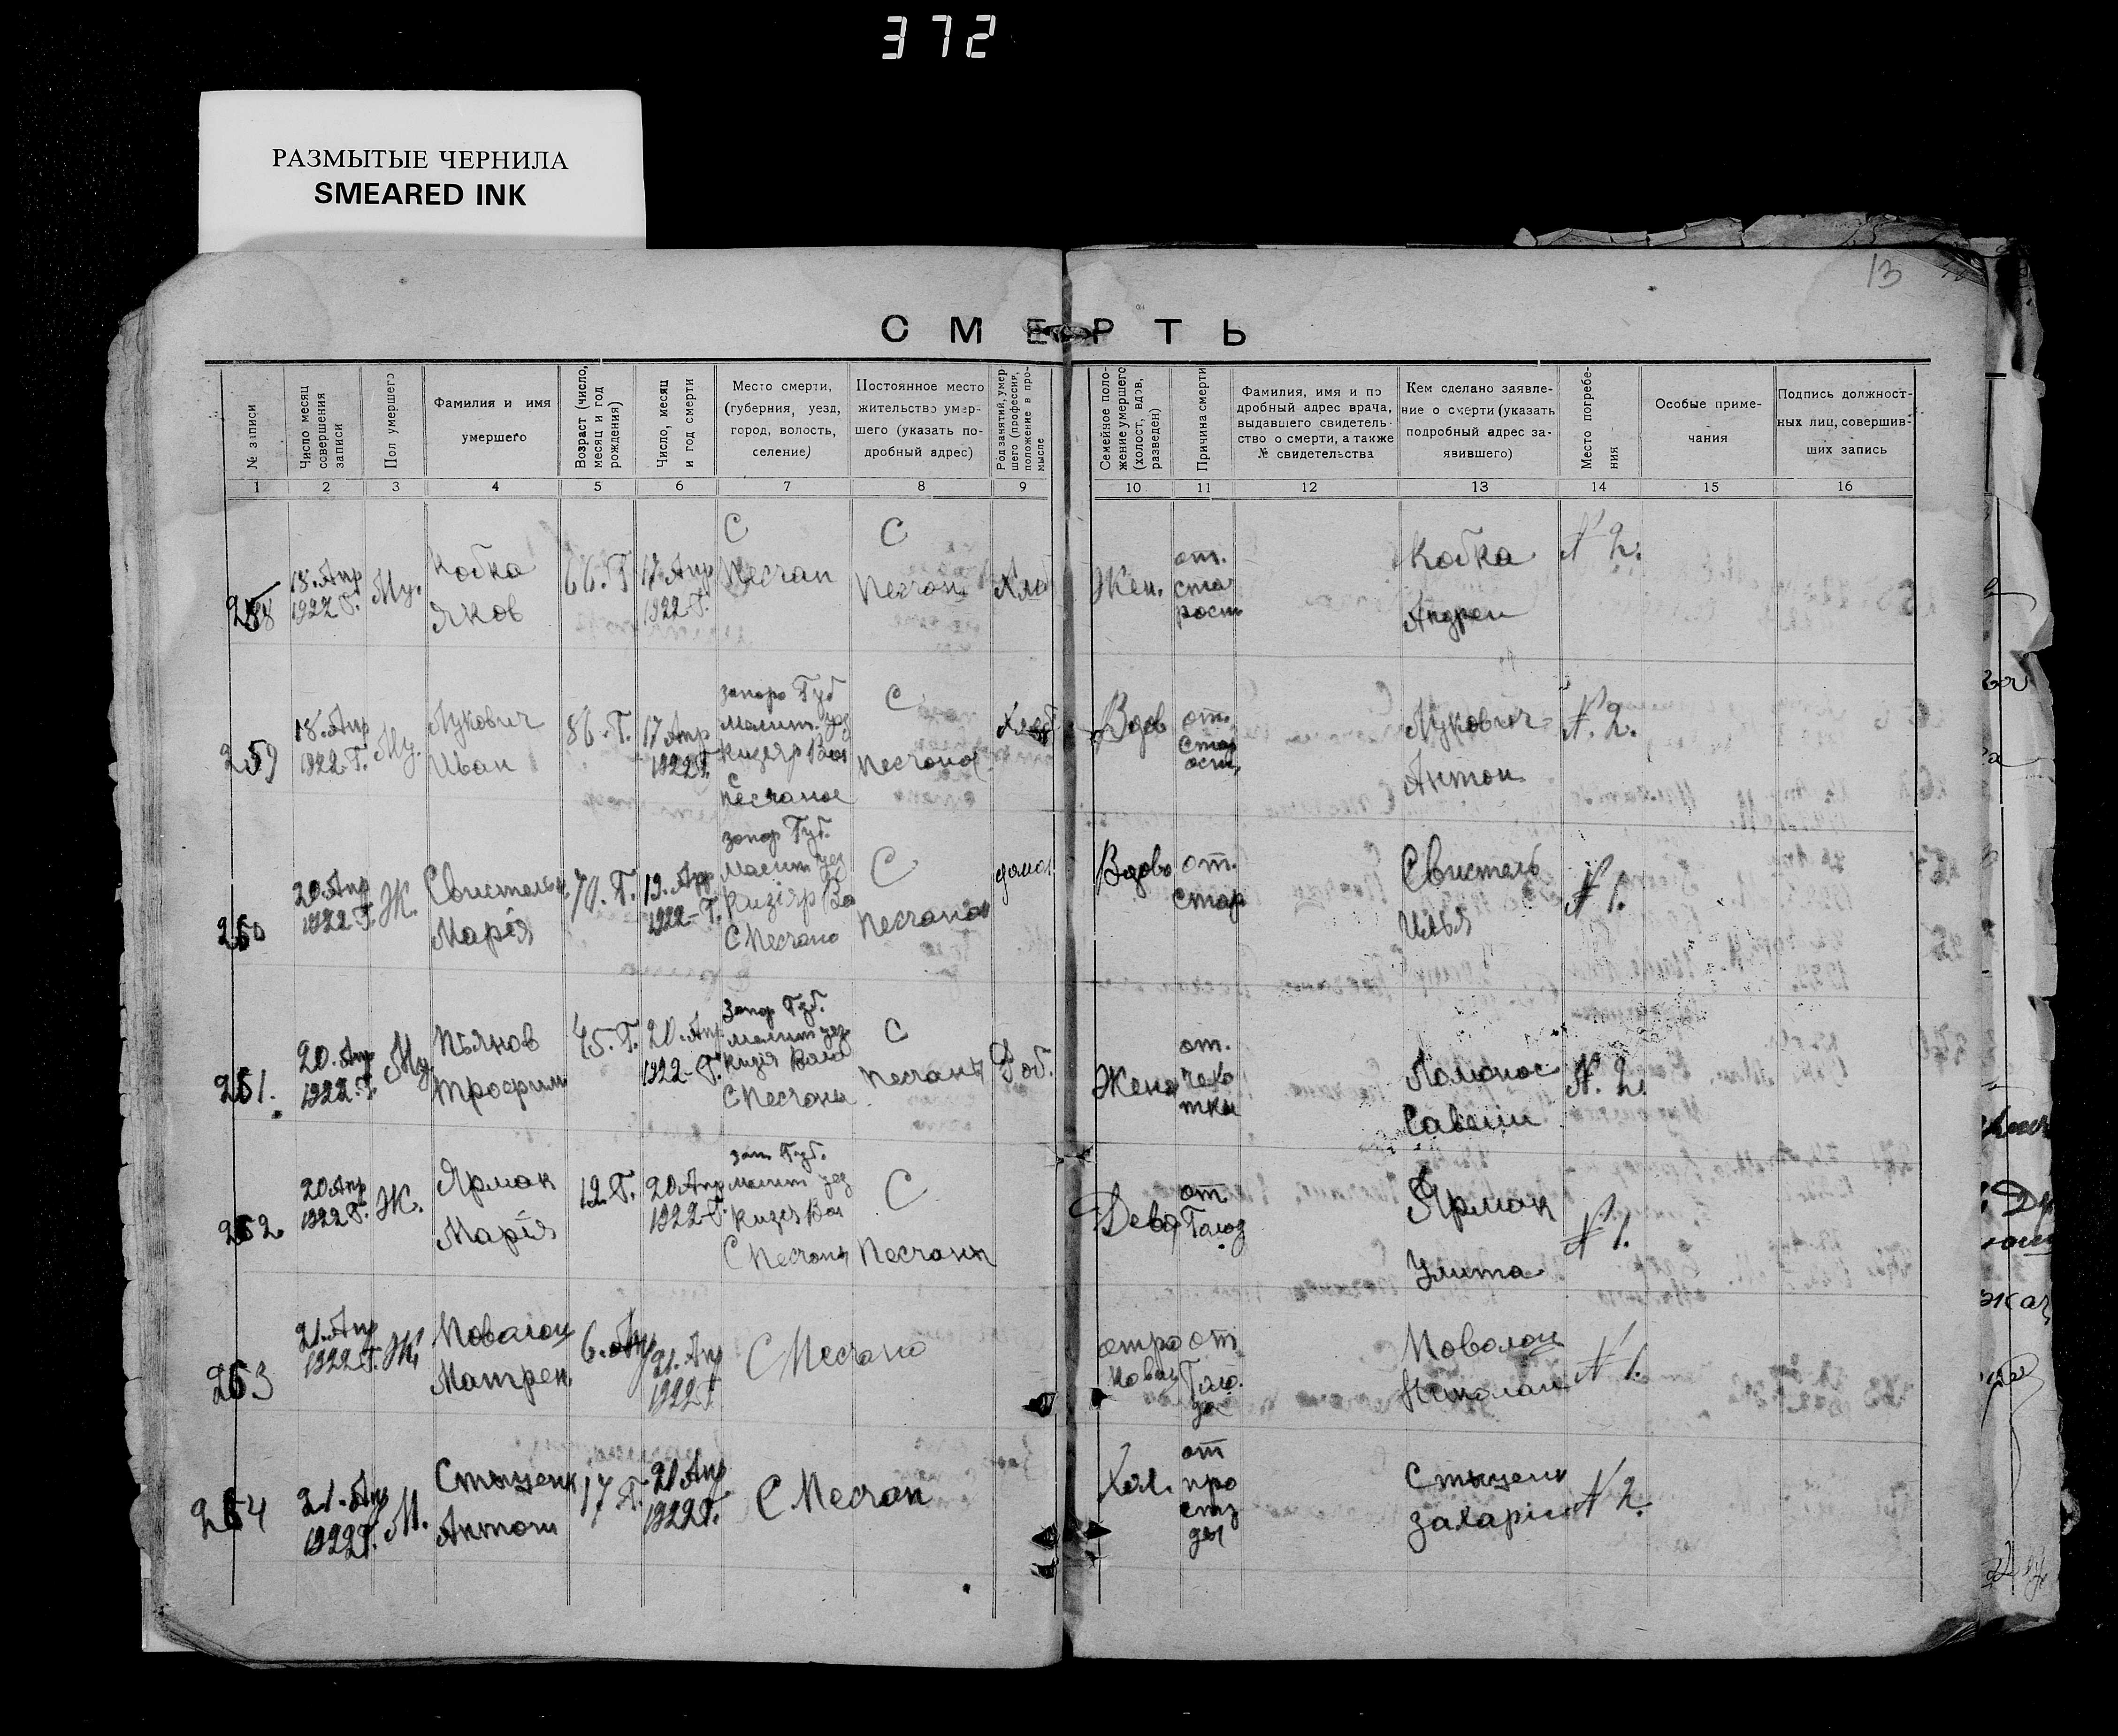 372
РАЗМЫТЫЕ ЧЕРНИЛА
SMEARED INK
13
СМЕРТЬ
№ записи
Число месяц совершения записи
Пол умершего
Фамилия и имя умершего
Возраст (число, месяц и год рождения)
Число, месяц и год смерти
Место смерти, (губерния, уезд, город, волость, селение)
Постоянное место жительство умершего (указать подробный адрес)
Род занятий, умершего (профессия, положение в промысле
Семейное положение умершего (холост, вдов, разведен)
Причина смерти
Фамилия, имя и подробный адрес врача, выдавшего свидетельство о смерти, а также № свидетельства
Кем сделано заявление о смерти (указать подробный адрес заявившего)
Место погребения
Особые примечания
Подпись должностных лиц, совершивших запись
1 2 3 4 5 6 7 8 9 10 11 12 13 14 15 16
258 18. Апр 1922 Г. Му. Кобка Яков 66. Г 17 Апр 1922 Г. С Песчан С Песчан Жен. от. старост Кобка Андреи № 2.
259 18. Апр 1922 Г. Му. Лукович Иван 86. Г. 17 Апр 1922 Г. запоро Губ мелит. уез С Песчаное С Песчаное Хлеб Вдов от. Старост, Лукович Антон № 2.
260 20 Апр 1922 Г. Ж. Свистельн Марія 70. Г. 19. Апр 1922 Г. запор Губ. мелит уез С Песчано С Песчаное дома Вдова от. Стар Свистель Илья № 1.
261. 20. Апр 1922 Г. Му Пьянов трофим 45. Г. 20. Апр 1922 Г. Запор Губ. мелит уез С Песчоны С Песчаны Роб. Жена от. чехотки Ломонос Савелии № 2.
262 20 Апр 1922 Г. Ж. Ярмак Марія 12. Г. 20 Апр 1922 Г. зап Губ. мелит уез С Песчаны С Песчаны Дева от Голод Ярмак Улита № 1.
263 21. Апр 1922 Г. Ж. Матрен 21. Апр 1922 Г. С Песчано от Голода № 1.
264 21. Апр 1922 Г. М. Стыценк Антон 17 Г. 21 Апр 1922 Г. С Песчан Хол. от простуды Стыценк захаріи № 2.